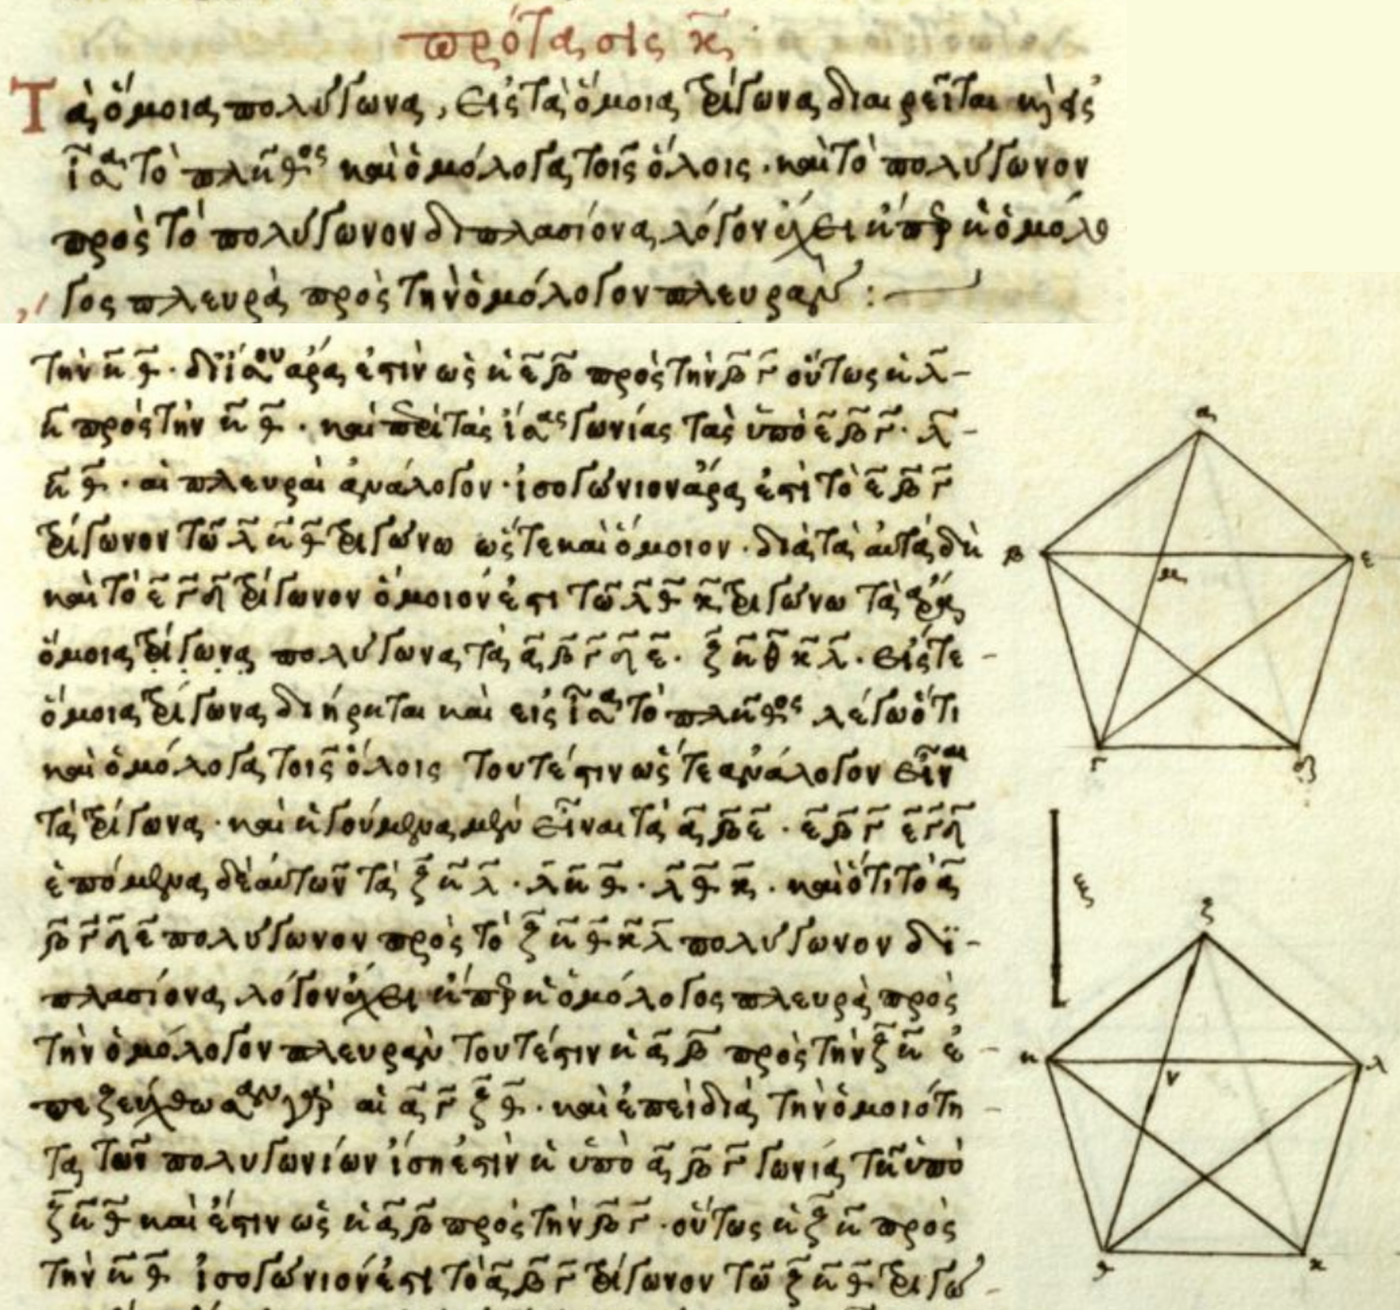 πρότασις κ̄
Τὰ ὅμοια πολύγωνα, εἰς τὰ ὅμοια τρίγωνα διαιρεῖται καὶ εἰς
ἴσα τὸ πλῆθος καὶ ὁμόλογα τοῖς ὅλοις · καὶ τὸ πολύγωνον
πρὸς τὸ πολύγωνον διπλασίονα λόγον ἔχει ἤπερ ἡ ὁμόλο
γος πλευρὰ πρὸς τὴν ὁμόλογον πλευράν :
τὴν η̄ θ̄ · δι ἴσου ἄρα ἐστὶν ὡς ἡ ε̄ β̄ πρὸς τὴν β̄ γ̄ οὕτως ἡ λ̄
η̄ πρὸς τὴν η̄ θ̄ · καὶ περὶ τὰς ἴσας γωνίας τὰς ὑπὸ ε̄ β̄ γ̄ · λ̄
η̄ θ̄ · αἱ πλευραὶ ἀνάλογον · ἰσογώνιον ἄρα ἐστὶ τὸ ε̄ β̄ γ̄
τρίγωνον τῷ λ̄ η̄ θ̄ τριγώνω ὥστε καὶ ὅμοιον · διὰ τὰ αὐτὰ δὴ
καὶ τὸ ε̄ γ̄ δ̄ τρίγωνον ὅμοιόν ἐστι τῷ λ̄ θ̄ κ̄ τριγώνω τὰ ἄρα
ὅμοια τρίγωνα πολύγωνα τὰ ᾱ β̄ γ̄ δ̄ ε̄ · ζ̄ η̄ θ̄ κ̄ λ̄ · εἰς τε
ὅμοια τρίγωνα διήρηται καὶ εἰς ἴσα τὸ πλῆθος λέγω ὅτι
καὶ ὁμόλογα τοῖς ὅλοις τουτέστιν ὥστε ἀνάλογον εἶναι
τὰ τρίγωνα · καὶ ἡγούμενα μὲν εἶναι τὰ ᾱ β̄ ε̄ · ε̄ β̄ γ̄ ε̄ γ̄ δ̄
ἑπόμενα δὲ αὐτῶν τὰ ζ̄ η̄ λ̄ · λ̄ η̄ θ̄ · λ̄ θ̄ κ̄ · καὶ ὅτι τὸ ᾱ
β̄ γ̄ δ̄ ε̄ πολύγωνον πρὸς τὸ ζ̄ η̄ θ̄ κ̄ λ̄ πολύγωνον δι
πλασίονα λόγον ἔχει ἤπερ ἡ ὁμόλογος πλευρὰ πρὸς
τὴν ὁμόλογον πλευρὰν τουτέστιν ἡ ᾱ β̄ πρὸς τὴν ζ̄ η̄ ἐ
πεζεύχθωσαν γὰρ αἱ ᾱ γ̄ ζ̄ θ̄ · καὶ ἐπεὶ διὰ τὴν ὁμοιότη
τα τῶν πολυγωνίων ἴση ἐστὶν ἡ ὑπὸ ᾱ β̄ γ̄ γωνία τῆ ὑπὸ
ζ̄ η̄ θ̄ καὶ ἔστιν ὡς ἡ ᾱ β̄ πρὸς τὴν β̄ γ̄ · οὕτως ἡ ζ̄ η̄ πρὸς
τὴν η̄ θ̄ ἰσογώνιόν ἐστι τὸ ᾱ β̄ γ̄ τρίγωνον τῷ ζ̄ η̄ θ̄ τριγώ
α
β
ε
μ
γ
δ
ξ
ζ
η
λ
ν
θ
κ